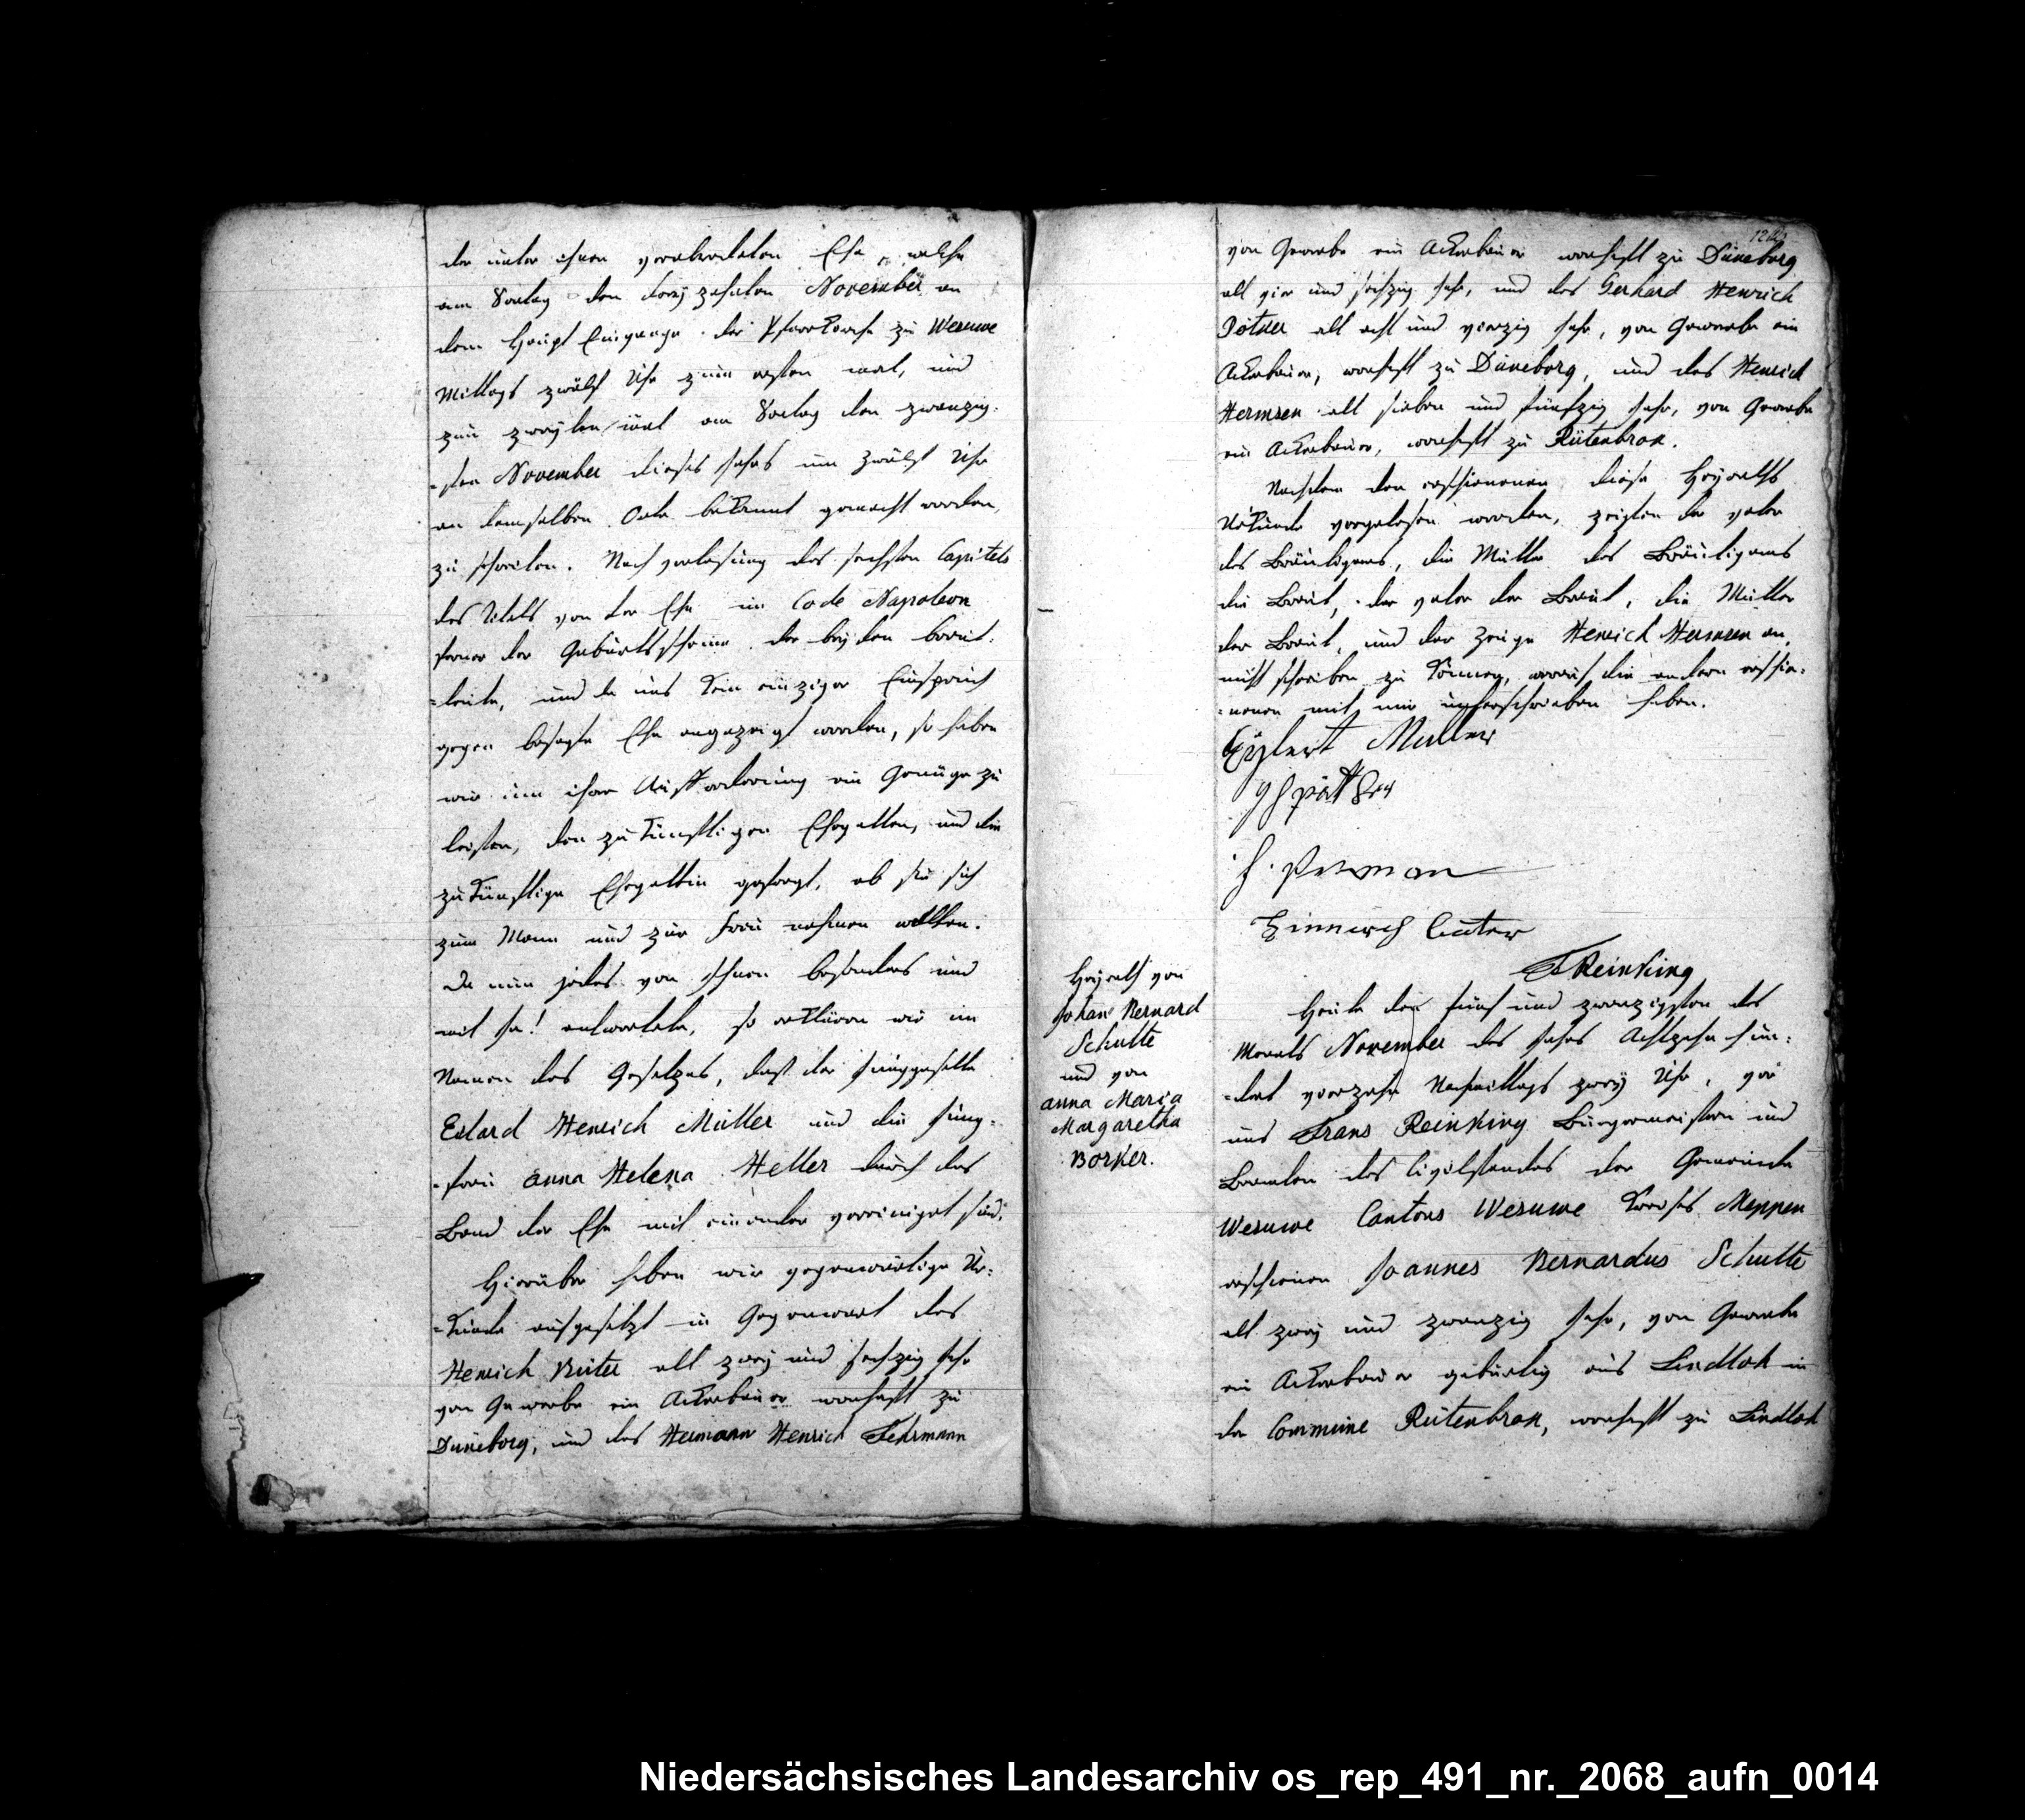 der unter ihnen verabredeten Ehe, welche
am Sontag den dreyzehnten November an
dem Haupt Eingange der Pfarrkirche zu Wesuwe
Mittags zwölf Uhr zum ersten mal, und
zum zweyten mal am Sontag den zwanzig-
=sten November dieses Jahrs um zwölf Uhr
an demselben Orte bekannt gemacht worden,
zu schreiten. Nach verlesung des sechsten Capitels
des Titels von der Ehe im Code Napoleon
ferner der Geburtsscheine der beyden braut-
=leute, und da uns kein einziger Einspruch
gegen besagte Ehe angezeigt worden, so haben
wir um ihrer Aufforderung ein Genüge zu
leisten, den zukünftigen Ehegatten, und die
zukünftige Ehegattin gefragt, ob sie sich
zum Mann und zur Frau nehmen wollten.
Da nun jedes von Ihnen besonders und
mit Ja! antwortete, so erklären wir im
Namen des Gesetzes, daß der Junggeselle
Erlard Henrich Müller und die Jung-
=frau Anna Helena Heller durch das
Band der Ehe mit einander vereiniget sind.
Hierüber haben wir gegenwärtige Ur-
=kunde aufgesetzt in Gegenwart des
Henrich Rüter alt zwey und sechzig Jahr
von Gewerbe ein Ackerbauer wonhaft zu
Duneborg, und des Hermann Henrich Fehrmann
von Gewerbe ein Ackerbauer wonhaft zu Duneborg
alt vier und sechzig Jahr, und des Gerhard Henrich
Pötker alt acht und vierzig Jahr, von Gewerbe ein
Ackerbauer, wonhaft zu Duneborg, und des Henrich
Hermsen alt sieben und fünfzig Jahr, von Gewerbe
ein Ackerbauer, wonhaft zu Rütenbrok.
Nachdem den erschienenen diese Heyraths
Urkunde vorgelesen worden, zeigten der vater
des Bräutigams, die Mutter des Bräutigams
die Braut, der vater der Braut, die Mutter
der Braut, und der Zeuge Henrich Hermsen an,
nicht schreiben zu können, worauf die andern erschie-
=nenen mit mir unterschrieben haben.
Eylert Muller
Hinnerch Ruter
FReinking
Heyrath von
Johan Bernard
Schulte
und von
Anna Maria
Margaretha
Borker.
Heute den fünf und zwanzigsten des
Monats November des Jahrs Achtzehn hun-
=dert vierzehn Nachmittags zwey Uhr, vor
uns Frans Reinking Bürgermeistern und
Beamten des Civilstandes der Gemeinde
Wesuwe Cantons Wesuwe Kreises Meppen
erschienen Joannes Bernardus Schulte
alt zwey und zwanzig Jahr, von Gewerbe
ein Ackerbauer gebürtig aus Lindloh in
der Commüne Rütenbrok, wonhaft zu Lindloh
Niedersächsisches Landesarchiv os_rep_491_nr._2068_aufn_0014